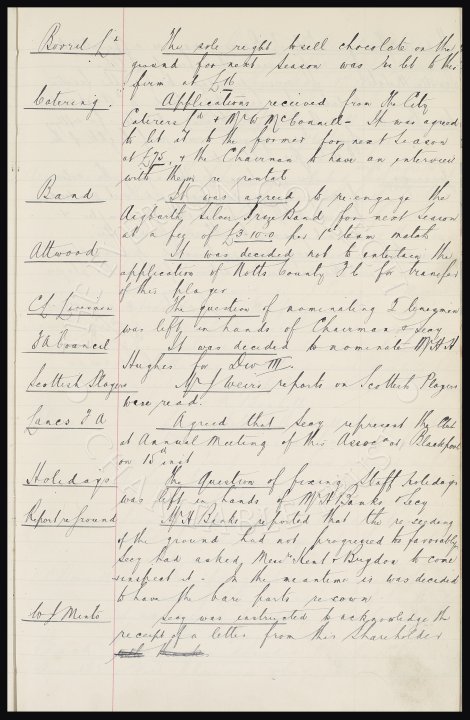 Bovril Ld The sole right to sell chocolate on the
ground for next season was re let to this
firm at £76
Catering. Applications received from The City
Caterers Ld & Mr W McConnell - It was agreed
to let it to the former for next season
at £75, & the Chairman to have an interview
with them re rental
Band It was agreed to re-engage the
Aigburth Silver Prize Band for next season
at a fee of £3.10.0 per 1st team match
Attwood It was decided not to entertain the
application of Notts County F C for transfer
of this player
The question of nominating 2 linesmen
was left in hands of Chairman & Secy
FA Council It was decided to nominate Mr A H
Hughes for Div III.
Scottish Players Mr J Weirs reports on Scottish Players
were read.
Lancs F A Agreed that Secy represent the Club
at Annual Meeting of this Assocn at Blackpool
on 15 inst
Holidays The Question of fixing Staff holidays
was left in hands of Mr H Banks & Secy
Report re ground Mr H Banks reported that the re-seeding
of the ground had not progressed favorably
Secy had asked Messrs Kent & Brigdon to come
& inspect it - In the meantime it was decided
to have the bare parts re sown
W J Minto Secy was instructed to acknowledge the
receipt of a letter from this shareholder